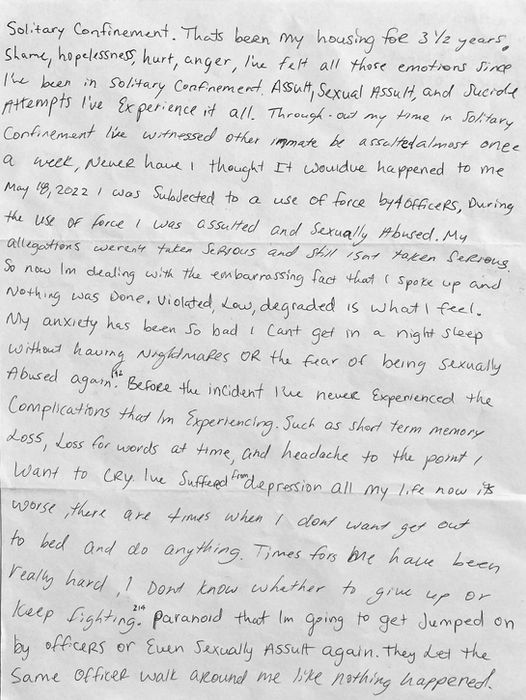 Solitary Confinement. Thats been my housing foe 3 1/2 years.
Shame, hopelessness, hurt, anger, I've felt all those emotions since
I've been in Solitary Confinement. Assult, Sexual Assult, and Sucide
Attempts I've Experience it all. Through-out my time in Solitary
Confinement I've witnessed other inmate be assulted almost once
a week, Never have I thought It wouldve happened to me
May 18, 2022 I was Subdected to a use of force by 4 officers, During
the use of force I was assulted and Sexually Abused. My
allegations weren't taken Serious and still isnt taken Serious.
So now Im dealing with the embarrassing fact that I spoke up and
Nothing was Done. Violated, Low, degraded is what I feel.
My anxiety has been so bad I Cant get in a night sleep
without having Nightmares OR the fear of being sexually
Abused again. Before the incident I've never Experienced the
Complications that Im Experiencing. Such as short term memory
Loss, Loss for words at time, and headache to the point I
Want to Cry. I've Suffered From depression all my life now its
worse, there are times when I dont want get out
to bed and do anything. Times fors me have been
really hard, I Dont know whether to give up or
Keep fighting. 214 Paranoid that Im going to get Jumped on
by officers or Even Sexually Assult again. They Let the
Same Officer walk around me like nothing happened.